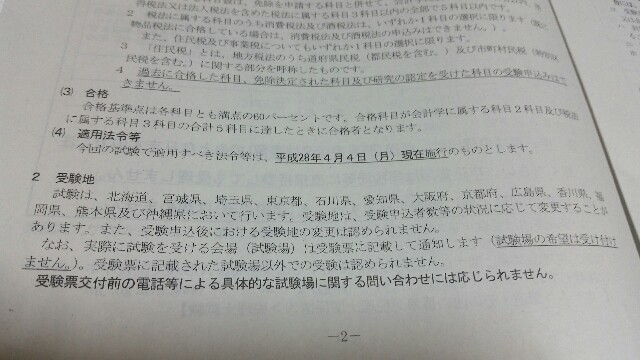 得税法又は法人税法を含めた税法に属する科目3科目以内の全部で5科目以内です。
2 税法に属する科目のうち消費税法及び酒税法は、いずれか1科目の選択に限ります
物品税法に合格している場合は、消費税法及び酒税法の申込みはできません。）。
また、住民税及び事業税についてもいずれか1科目の選択に限ります。
3 「住民税」とは、地方税法のうち道府県民税（都民税を含む。）及び市町村民税（特別区
民税を含む。）に関する部分を呼称したものです。
4 過去に合格した科目、免除決定された科目及び研究の認定を受けた科目の受験申込みはで
きません。
(3) 合格
合格基準点は各科目とも満点の60パーセントです。合格科目が会計学に属する科目2科目及び税法
に属する科目3科目の合計5科目に達したときに合格者となります。
(4) 適用法令等
今回の試験で適用すべき法令等は、平成28年4月4日（月）現在施行のものとします。
2 受験地
試験は、北海道、宮城県、埼玉県、東京都、石川県、愛知県、大阪府、京都府、広島県、香川県、福
岡県、熊本県及び沖縄県において行います。受験地は、受験申込者数等の状況に応じて変更することが
あります。また、受験申込後における受験地の変更は認められません。
なお、実際に試験を受ける会場（試験場）は受験票に記載して通知します（試験場の希望は受け付け
ません。）。受験票に記載された試験場以外での受験は認められません。
受験票交付前の電話等による具体的な試験場に関する問い合わせには応じられません。
―2―